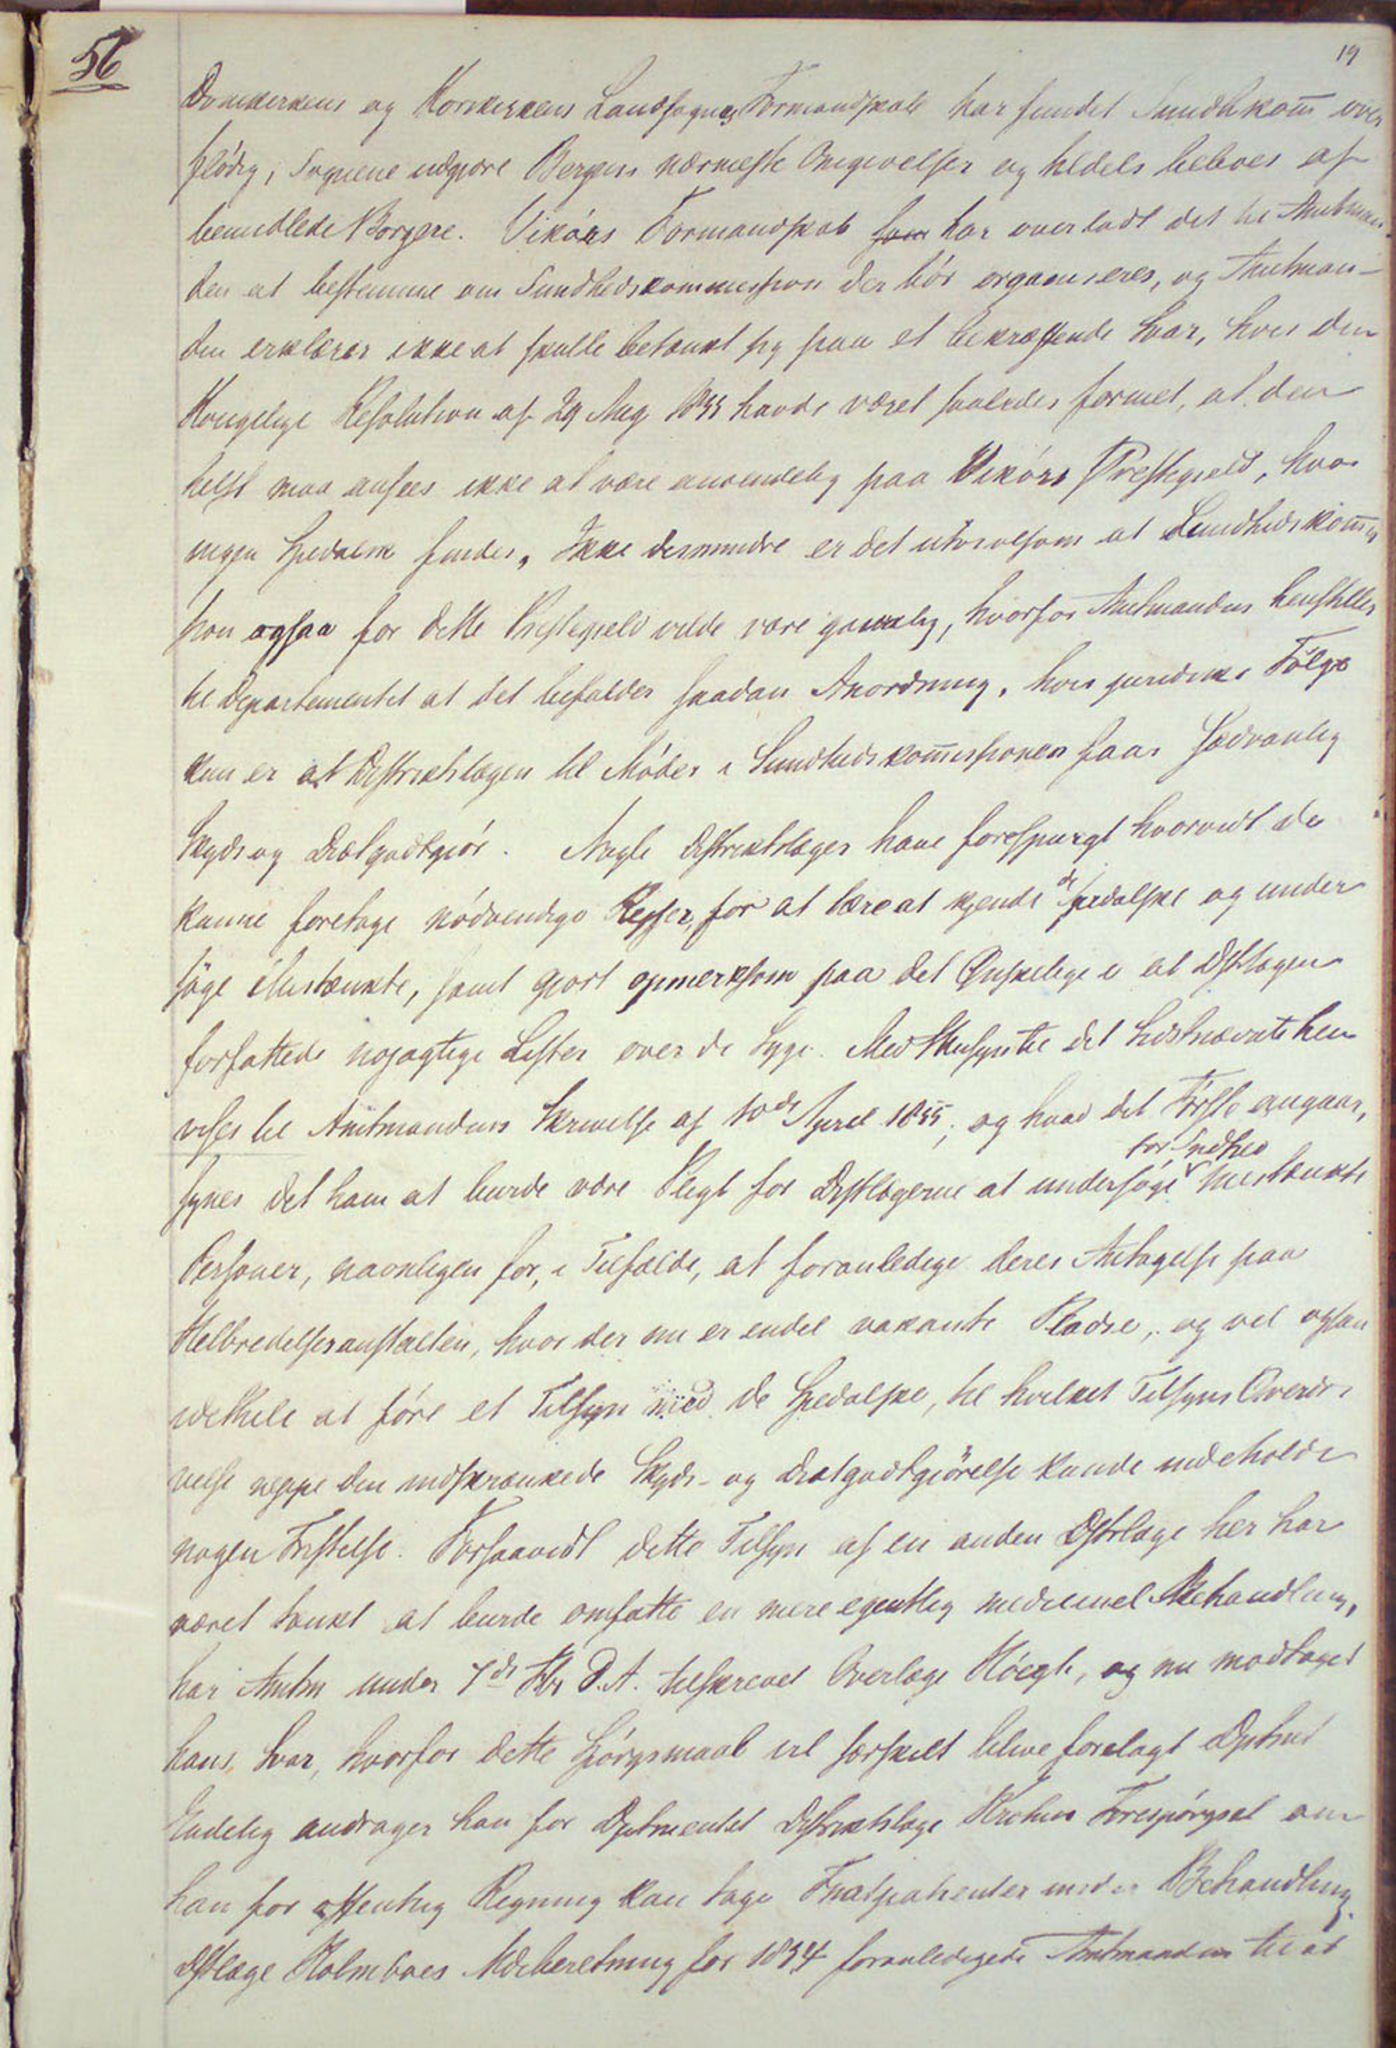 56
19
Domkirkens og Korskirkens Landsogns Formandskab har fundet Sundhkom̄ over
flödig, Sognene udgjøre Bergens nærmeste Omgivelser og tildels beboes af
bemidlede Borgere. Vikörs Formandskab som har overladt det til Amtman-
den at bestemme om Sundhedskommission der bör organiseres, og Amtman-
den erklærer ikke at skulle betænkt sig paa et bekræftende Svar, hvis den
Kongelige Resolution af 29 Aug 1855 havde været saaledes formet, at den
helst maa ansees ikke at være anvendelig paa Vikörs Præstegjeld, hvor
ingen Spedalsk findes. Ikke desmindre er det utvivlsomt at Sundhedskom̄is
sion ogsaa for dette Præstegjeld vilde være gavnlig, hvorfor Amtmanden henstiller
til Departementet at det befalder saadan Anordning, hvis juridiske Følge
kun er at Distriktslægen til Möder i Sundhedskom̄issionen faar sædvanlig
Skyds og Diætgodtgiör. Nogle Distriktslæger have forespurgt hvorvidt de
kunne foretage nödvendige Rejser, for at lære at kjende de Spedalske og under
söge Mistænkte, samt gjort opmerksom paa det Ønskelige i at Distlægen
forfattede nøjagtige Lister over de Syge. Med Hensyn til det Sidstnævnte hen
vises til Amtmandens Skrivelse af 10de April 1855, og hvad det Förste angaar,
for Spedhed
synes det ham at burde være Pligt for Distlægerne at undersöge mistænkte
Personer, navnligen for, i Tilfælde, at foranledige deres Antagelse paa
Helbredelsesanstalten, hvor der nu er endel vakante Pladse, og vel ogsaa
idethele at före et Tilsyn med de Spedalske, til hvilket Tilsyns Overdri
velse neppe den indskrænkede Skyds- og Diætgodtgiörelse kunde indeholde
nogen Fristelse. Forsaavidt dette Tilsyn af en anden Distrlæge her har
været tænkt at burde omfatte en mere egentlig medicinel Behandling,
har Amtm under 7de Fbr D.A. tilskrevet Overlæge Höegh, og nu modtaget
hans Svar, hvorfor dette Spörgsmaal vil særskilt blive forelagt Dptmt
Endelig andrager han for Dptmentet Distriktslæge Krohns Forespörgsel om
han for offentlig Regning kan tage Fnatpatienter under Behandling.
Distlæge Holmboes Medberetning for 1854 foranledigede Amtmanden til at